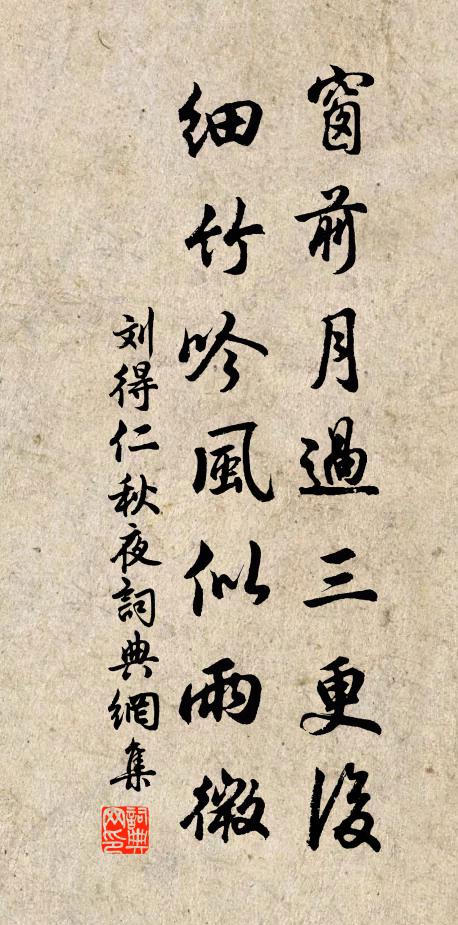 窗前月過三更後
細竹吟風似雨微
刘得仁秋夜詞典網集
詞典网印